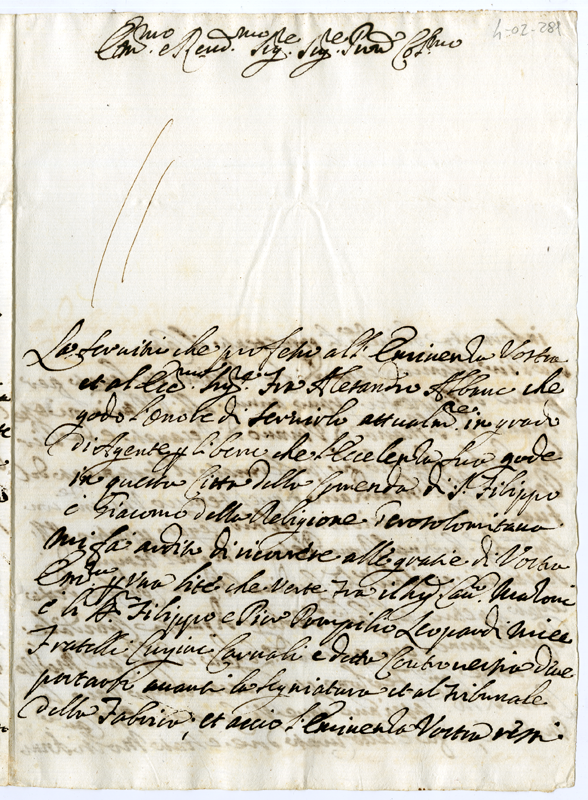 4-02-281
Em.mo e Reud.mo Sig.re Sig.re Pron Col.mo
La seruitù che professo all' Eminenza Vostra
et all'Ecc.mo Sig.r Fra Alesandro Albani che
godo l'onore di seruirlo attualm.te in grado
di Agente p li beni che l'Eccelenza sua gode
in questa Città della Comenda di S. Filippo
e Giacomo della Religione Gerosolomitana
mi fa ardito di ricorrere alle gratie di Vostra
Em.za p una lite che verte fra il Sig. Cau.
e li SS.ri Filippo e Pier Pompilio Leopardi miei
Fratelli Cugini Carnali e detta Controuersia deue
portarsi auanti la Segniatura et al Tribunale
della Fabrica, et acciò l'Eminenza Vostra